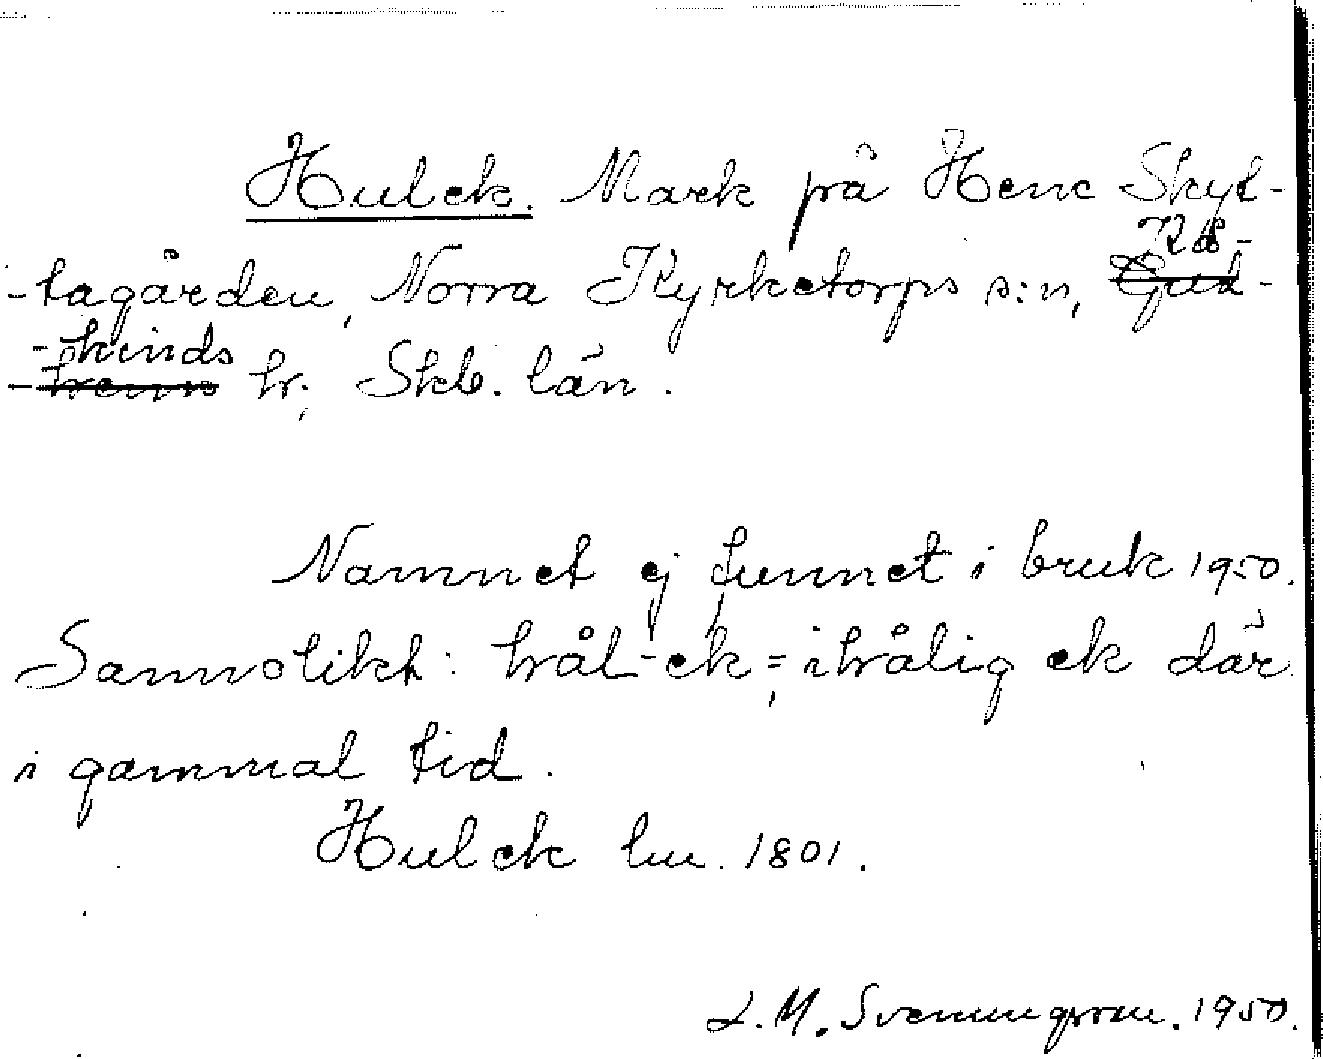 Hulek. Mark på Hene Skyt-
-tagården, Norra Kyrketorps s:n, Kå-
-kinds hr; Skb. län.
Namnet ej funnet i bruk 1950.
Sannolikt: hål-ek = ihålig ek där
i gammal tid.
Hulek lm. 1801.
L.M. Svenungsson. 1950.